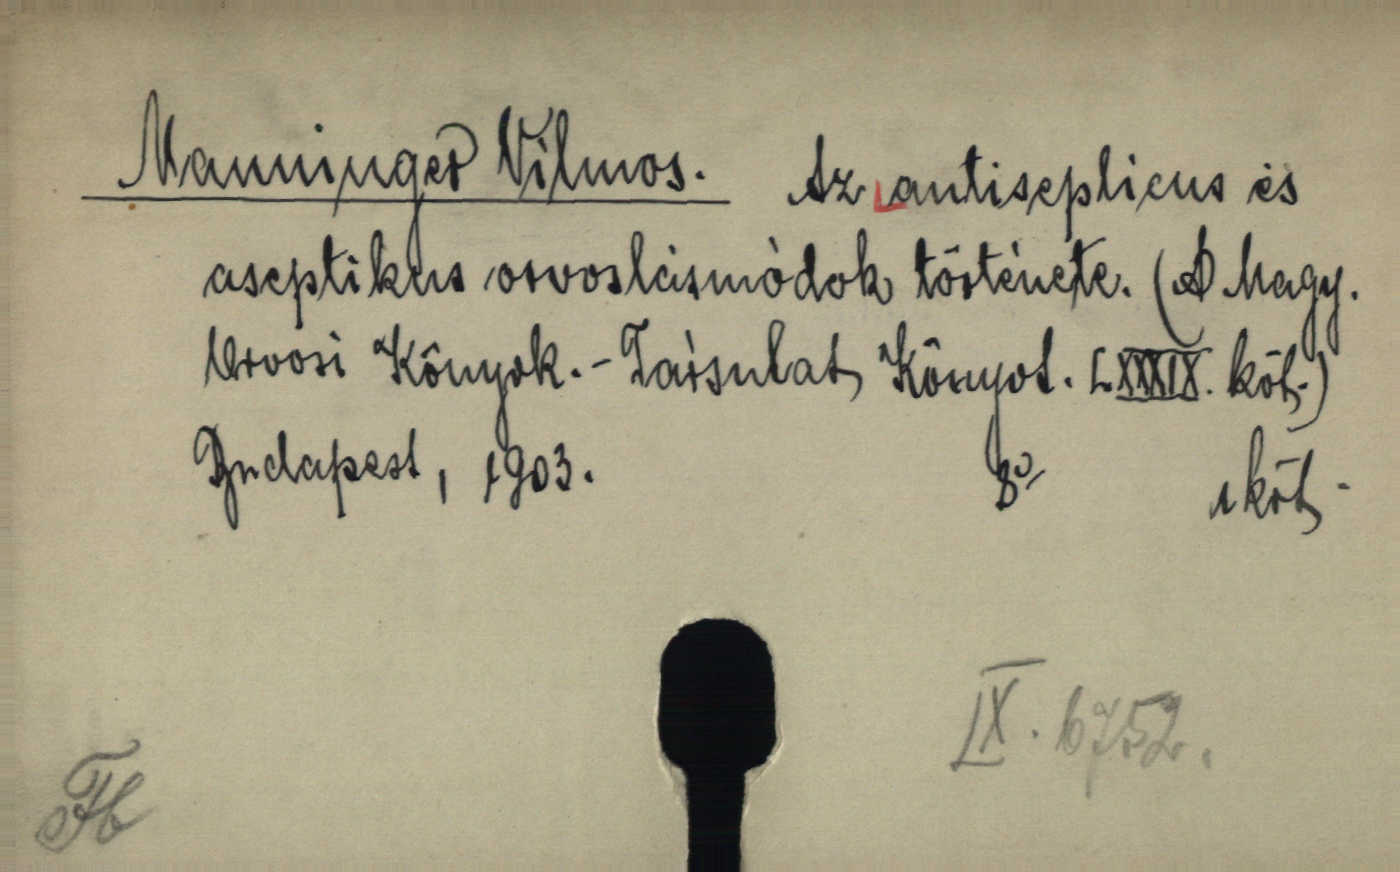 Manninger Vilmos. Az antisepticus és
aseptikus orvoslásmódok története. (A Magy.
Orvosi Könyvk.-Társulat Könyvt. LXXXIX. köt.)
Budapest, 1903. 8° 1 köt.
IX. 6752.
Fb